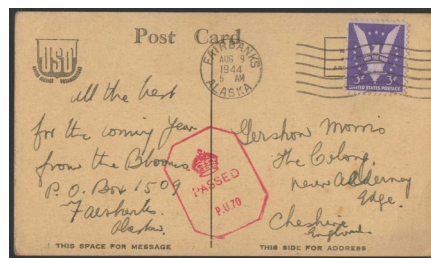 USO
Post Card
FAIRBANKS
AUG 9
1944
5 AM
ALASKA
WIN THE WAR
3¢ 3¢
UNITED STATES POSTAGE
all the best
for the coming year
from the Blooms
P.O. Box 1509
Fairbanks
Alaska.
PASSED
P.U.70
Gershon Morris
The Colony,
near Alderney
Edge.
Cheshire
England
THIS SPACE FOR MESSAGE
THIS SIDE FOR ADDRESS